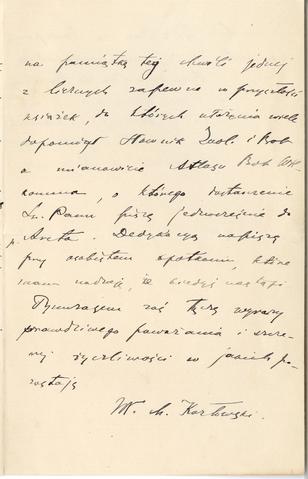 na pamiątkę tej chwili jednej
z licznych zapewne w przyszłości
książek, do których ułożenia wiele
dopomógł Słownik Zool. i Bot.
a mianowicie Atlasu Bot.
o którego dostarczenie
Sz. Panu piszę jednocześnie do
p. Arcta. Dedykacyą napiszę
przy osobistem spotkaniu, które
mam nadzieję, że kiedyś nastąpi
Tymczasem zaś łączę wyrazy
prawdziwego poważania i szcze-
rej życzliwości w jakich po-
zostaję
W. M. Kozłowski.